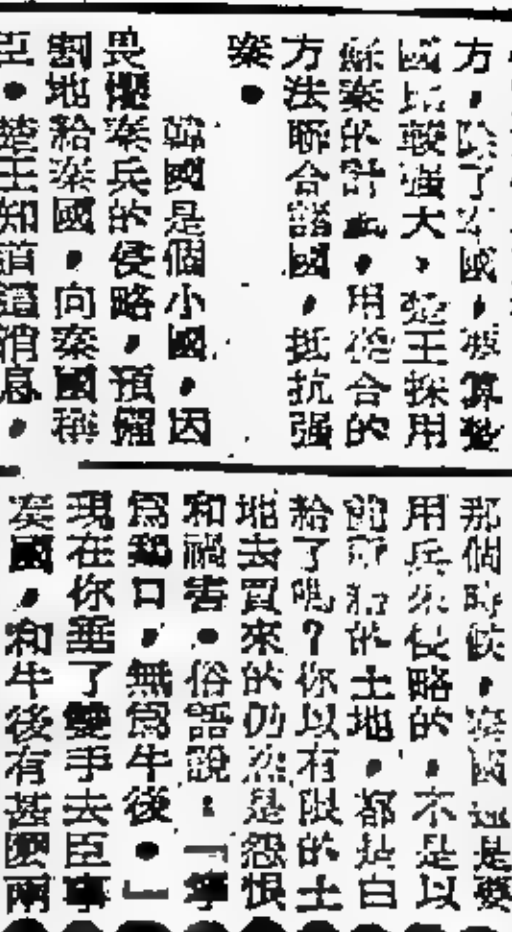 方，除了秦國，要算楚
國比較强大，楚王採用
蘇秦的計畫，用從合的
方法聯合諸國，抵抗强
秦。
韓國是個小國，因
畏懼秦兵的侵略，預備
割地給秦國，向秦國稱
臣。楚王知道這消息，
那個時候，秦國還是要
用兵來侵略的，不是以
前所割的土地，都是白
給了嗎？你以有限的土
地去買來的仍然是怨恨
和禍害。俗語說：「寧
爲鷄口，無爲牛後。」
現在你垂了雙手去臣事
秦國，和牛後有甚麼兩